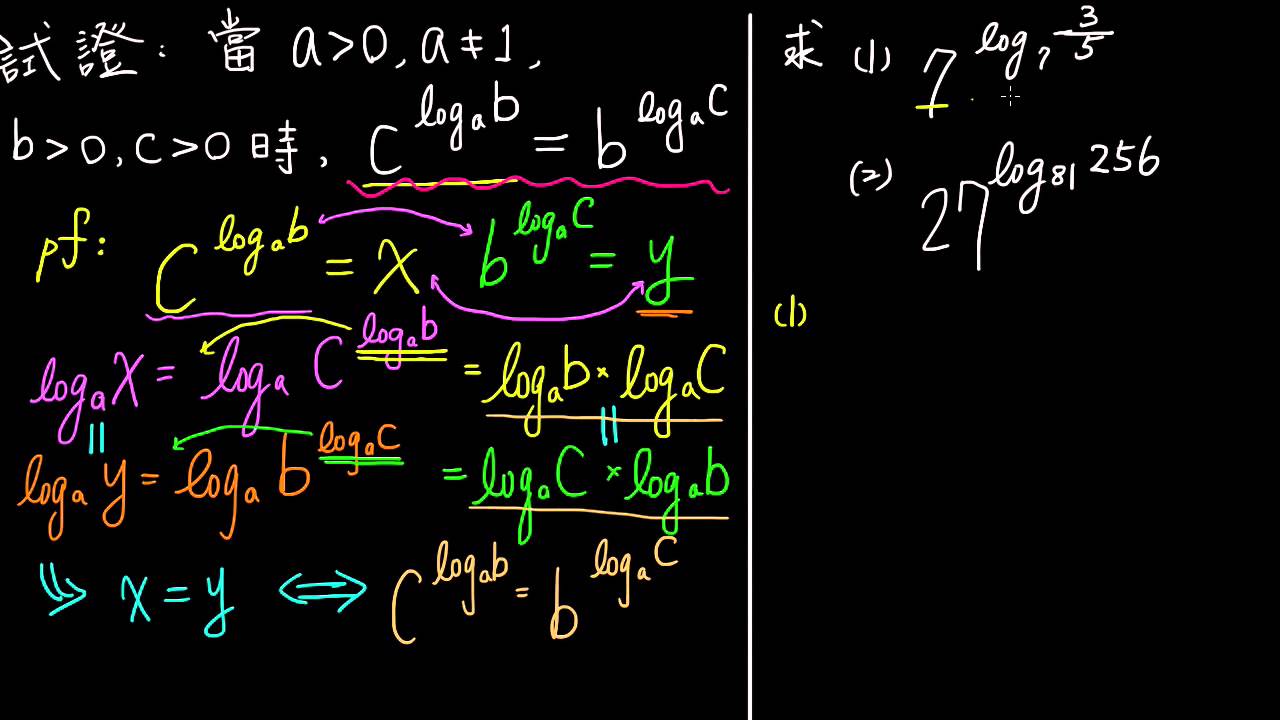 試證：當 a>0, a≠1,
b>0, c>0 時, c^{log_a b} = b^{log_a c}
pf: c^{log_a b} = x b^{log_a c} = y
log_a x = log_a c^{log_a b} = log_a b × log_a c
||  ||
log_a y = log_a b^{log_a c} = log_a c × log_a b
⇒ x = y ⟺ c^{log_a b} = b^{log_a c}
求 (1) 7^{log_7 3/5}
(2) 27^{log_81 256}
(1)